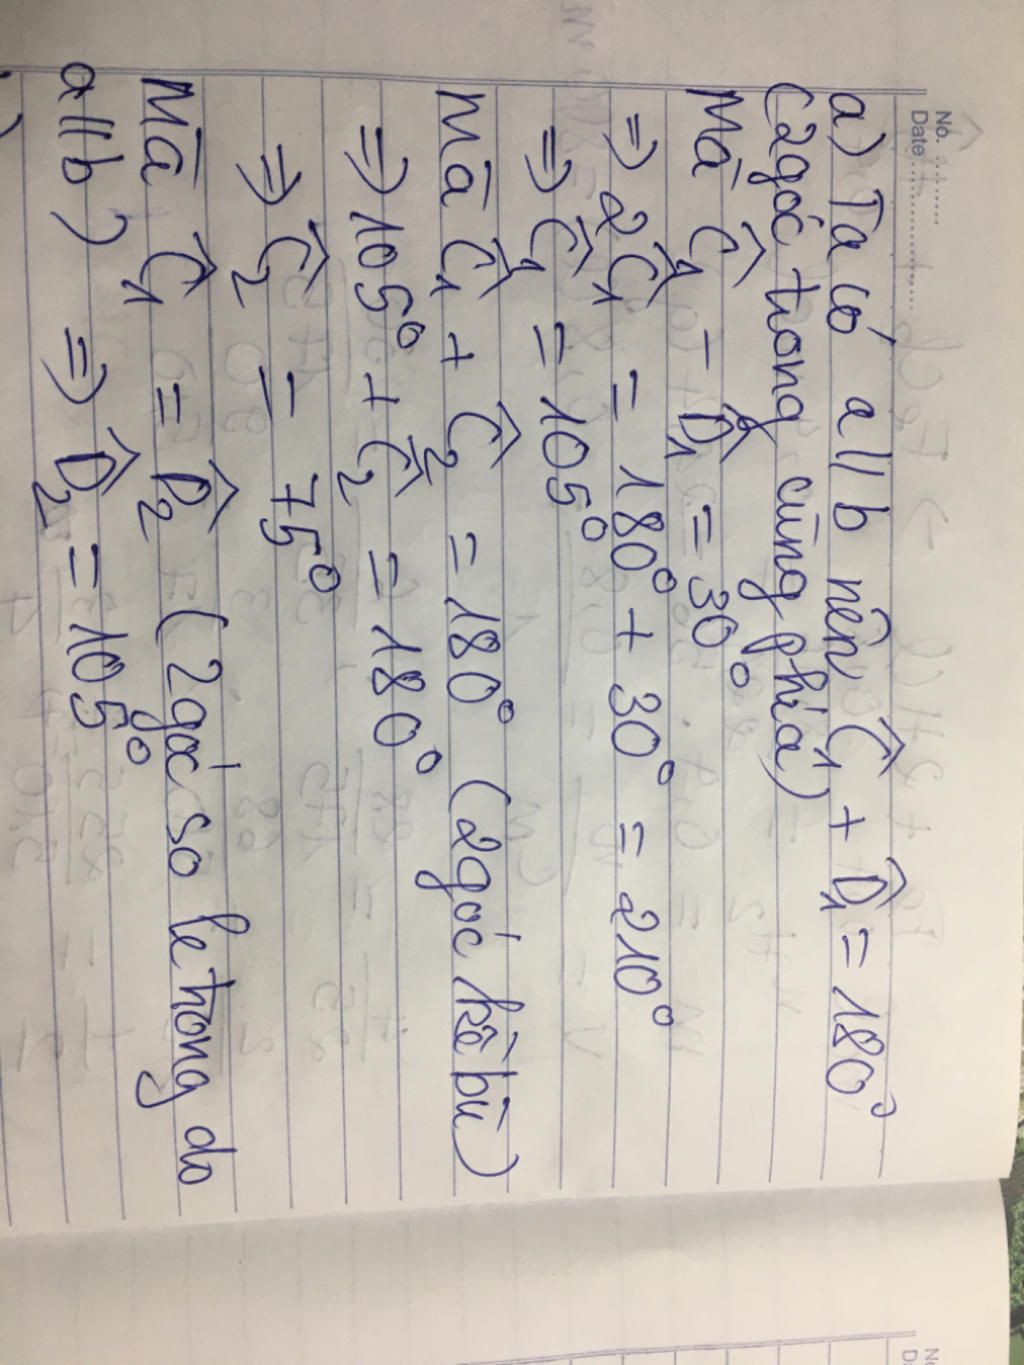 No. ........
Date ....................
a) Ta có a//b nên Ĉ₁ + D̂₁ = 180°
(2góc tương cùng phía)
Mà Ĉ₁ - D̂₁ = 30°
⇒ 2Ĉ₁ = 180° + 30° = 210°
⇒ Ĉ₁ = 105°
Mà Ĉ₁ + Ĉ₂ = 180° (2góc kề bù)
⇒ 105° + Ĉ₂ = 180°
⇒ Ĉ₂ = 75°
Mà Ĉ₁ = D̂₂ (2góc so le trong do
a//b) ⇒ D̂₂ = 105°